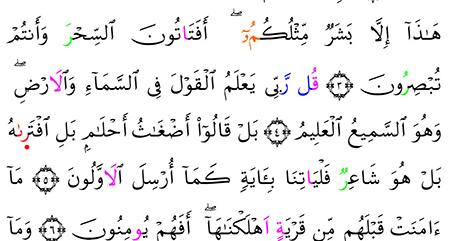 هَٰذَآ إِلَّا بَشَرٌ مِّثْلُكُمُۥٓۖ أَفَتَاتُونَ ٱلسِّحْرَ وَأَنتُمْ
تُبْصِرُونَ ۝٣ قُل رَّبِّى يَعْلَمُ ٱلْقَوْلَ فِى ٱلسَّمَآءِ وَٱلَارْضِۖ
وَهُوَ ٱلسَّمِيعُ ٱلْعَلِيمُ ۝٤ بَلْ قَالُوٓا۟ أَضْغَٰثُ أَحْلَٰمِۭ بَلِ ٱفْتَرَىٰهُ
بَلْ هُوَ شَاعِرٌ فَلْيَاتِنَا بِـَٔايَةٍ كَمَآ أُرْسِلَ ٱلَاوَّلُونَ ۝٥ مَآ
ءَامَنَتْ قَبْلَهُم مِّن قَرْيَةٍ اَهْلَكْنَٰهَآۖ أَفَهُمْ يُومِنُونَ ۝٦ وَمَآ